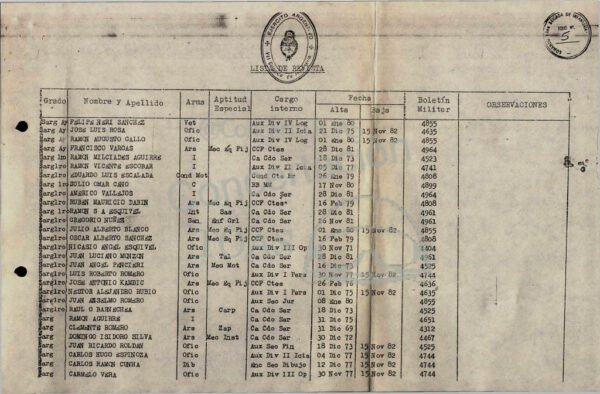 EJERCITO ARGENTINO
LISTA DE REVISTA
Grado Nombre y Apellido Arma Aptitud Especial Cargo interno Fecha Alta Baja Boletín Militar OBSERVACIONES
Sarg Ay FELIPE NERI SANCHEZ Vet Aux Div IV Log 01 Ene 80 4855
Sarg Ay JOSE LUIS ROSA Ofic Aux Div II Icia 21 Dic 75 15 Nov 82 4635
Sarg Ay RAMON AUGUSTO GALLO Ofic Aux Div IV Log 01 Ene 80 4855
Sarg Ay FRANCISCO VARGAS Ars Mec Eq Fij CCF Ctes 28 Dic 81 4964
Sarg1ro RAMON MILCIADES AGUIRRE I Ca Cdo Ser 18 Dic 73 4523
Sarg1ro RAMON VICENTE ESCOBAR I Aux Div II Icia 05 Dic 77 4741
Sarg1ro EDUARDO LUIS ESCALADA Cond Mot Cond Cte Br 26 Ene 79 4808
Sarg1ro JULIO OMAR CANO C BB MM 17 Nov 80 4899
Sarg1ro AMERICO VALLEJOS Ca Cdo Ser 28 Dic 81 4964
Sarg1ro RUBEN MAURICIO DABIN Ars Mec Eq Fij CCF Ctes 16 Feb 79 4808
Sarg1ro RAMON S A ESQUIVEL Int Sas Ca Cdo Ser 28 Dic 81 4961
Sarg1ro GREGORIO NUÑEZ San Enf Grl Ca Cdo Ser 26 Dic 81 4961
Sarg1ro JULIO ALBERTO BLANCO Ars Mec Eq Fij CCF Ctes 01 Ene 80 15 Nov 82 4855
Sarg1ro OSCAR ALBERTO SANCHEZ Ars Mec Eq Fij CCF Ctes 16 Feb 79 4808
Sarg1ro NICASIO ANGEL ESQUIVEL Ofic Aux Div III Op 30 Nov 71 4404
Sarg1ro JUAN LUCIANO MONZON Ars Tal Ca Cdo Ser 28 Dic 81 4961
Sarg1ro JUAN ANGEL Ars Mec Mot Ca Cdo Ser 16 Dic 73 4525
Sarg1ro LUIS ROBERTO ROMERO Ofic Aux Div I Pers 30 Nov 77 15 Nov 82 4744
Sarg1ro JOSE ANTONIO KAMDIC Ars Mec Eq Fij CCF Ctes 26 Feb 76 4636
Sarg1ro NESTOR ALEJANDRO RUBIO Ofic Aux Div I Pers 01 Dic 75 15 Nov 82 4635
Sarg1ro JUAN ANSELMO ROMERO Ofic Aux Sec Jur 08 Ene 80 4855
Sarg1ro RAUL O BARNECHEA Ars Carp Ca Cdo Ser 18 Dic 73 4525
Sarg RAMON AGUIRRE I Ca Cdo Ser 31 Dic 75 4651
Sarg CLEMENTE ROMERO Ars Zap Ca Cdo Ser 31 Dic 69 4312
Sarg DOMINGO ISIDORO SILVA Ars Mec Inst Ca Cdo Ser 30 Dic 72 4467
Sarg JUAN RICARDO ROLDAN Ofic Aux Sec Fin 18 Dic 73 15 Nov 82 4525
Sarg CARLOS HUGO ESPINOZA Ofic Aux Div II Icia 04 Dic 77 15 Nov 82 4744
Sarg CARLOS RAMON CUNHA Dib Enc Sec Dibujo 12 Dic 77 15 Nov 82 4744
Sarg CARMELO VERA Ofic Aux Div III Op 30 Nov 77 15 Nov 82 4744